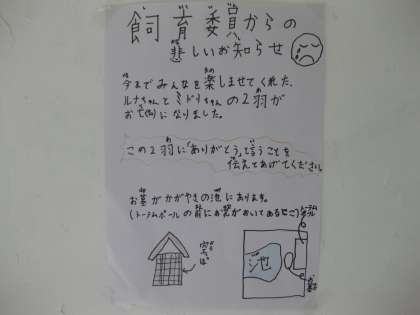 飼育委員からの
悲しいお知らせ
今までみんなを楽しませてくれた、
ルナちゃんとミドリちゃんの2羽が
お亡になりました。
この2羽に「ありがとう」と言うことを
伝えてあげてください。
お墓がかがやきの池にあります。
(トーテムポールの前にお花がおいてあるとこ)
池
お墓